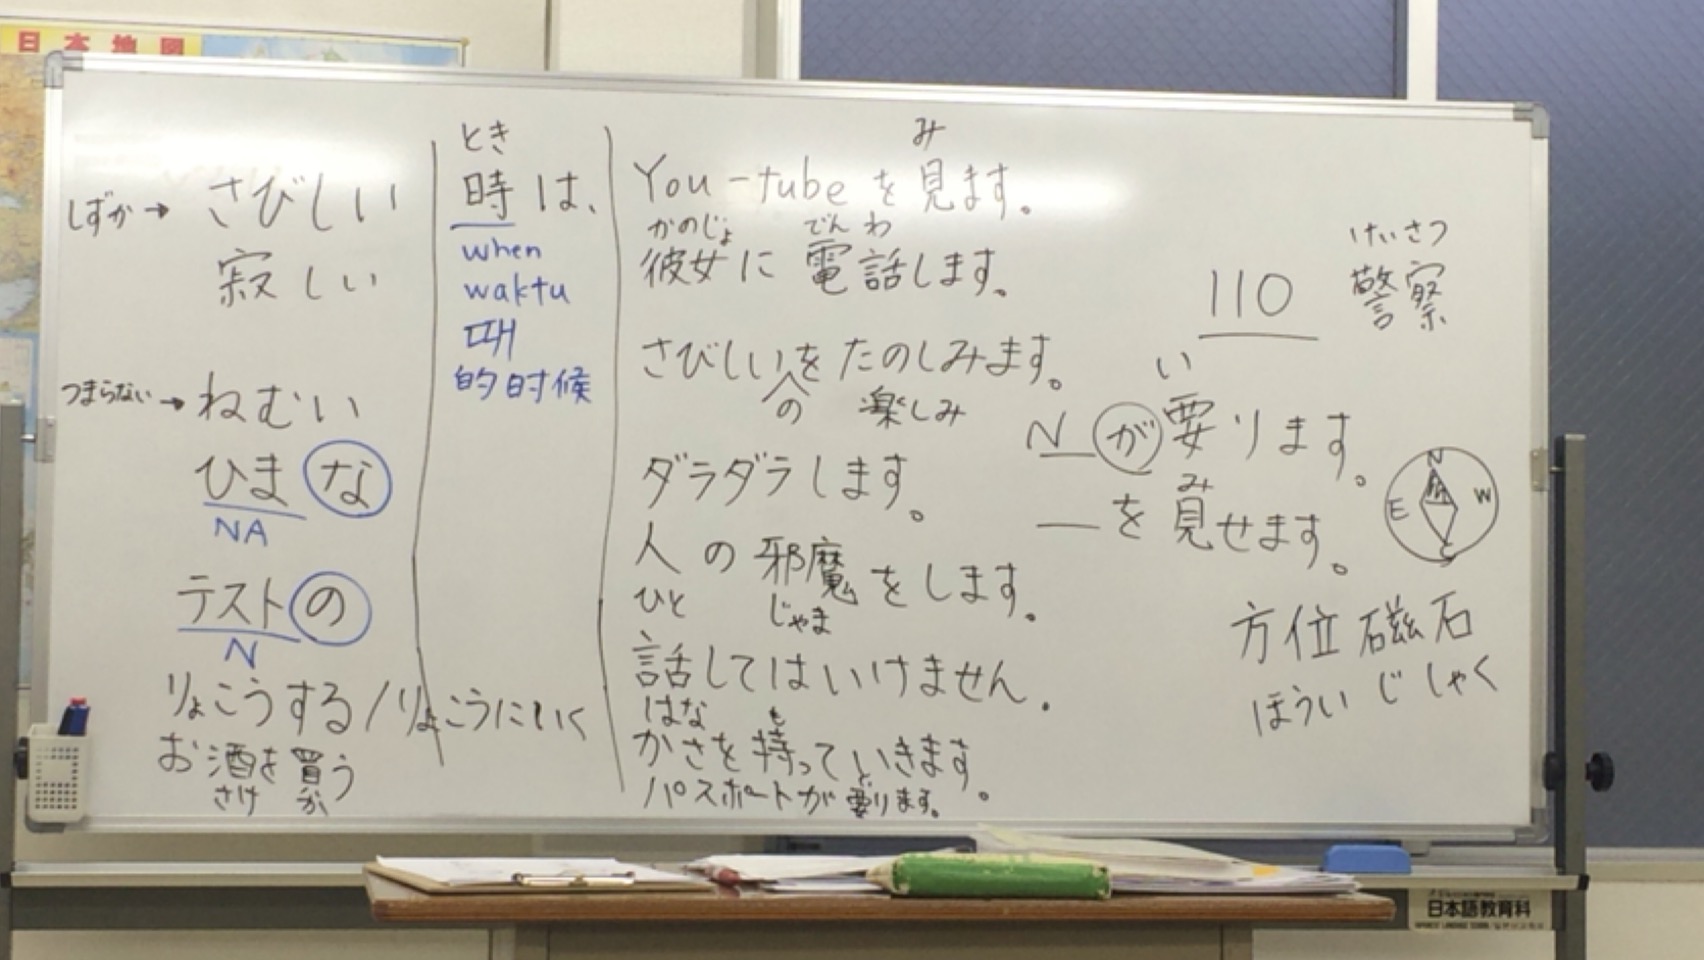 日本地図
しずか→ さびしい
寂しい
つまらない→ ねむい
ひまな
NA
テストの
N
りょこうする/りょこうにいく
お酒を買う
さけ か
とき
時は、
when
waktu
때
的时候
み
You-tubeを見ます。
かのじょ でんわ
彼女に電話します。
さびしいをたのしみます。
の 楽しみ
ダラダラします。
人の邪魔をします。
ひと じゃま
話してはいけません.
はな も
かさを持っていきます。
い
パスポートが要ります。
けいさつ
110 警察
い
N が要ります。
み
を見せます。
N
E W
S
方位磁石
ほういじしゃく
日本語教育科